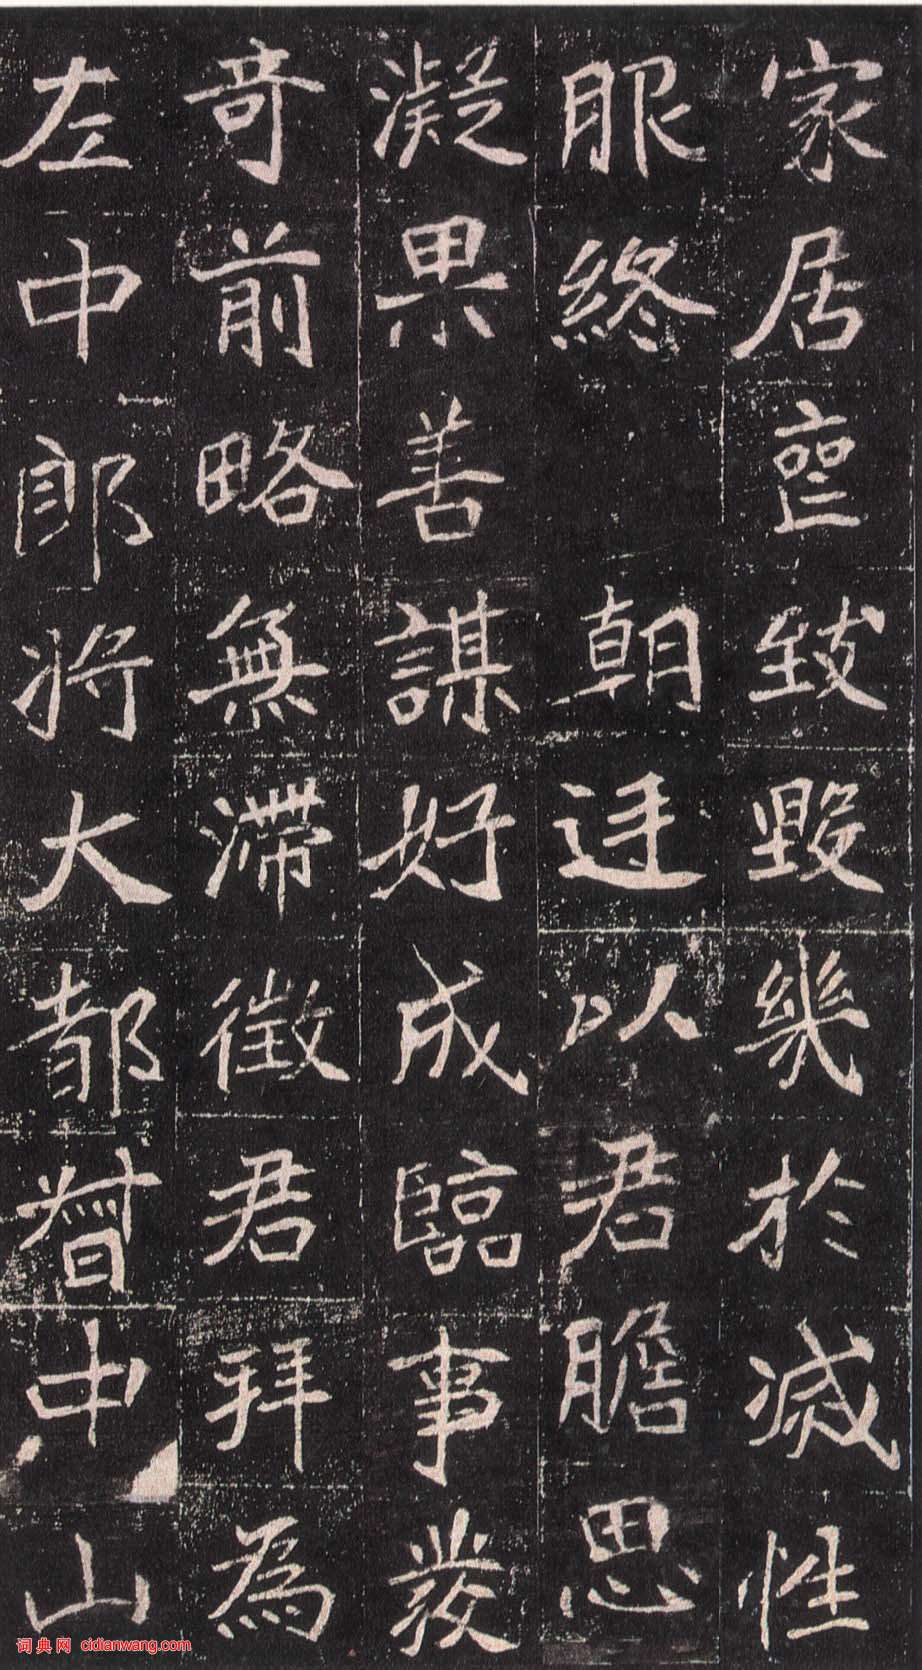 家居喪致毀幾於滅性
服終 朝廷以君膽思
凝果善謀好成臨事發
奇前略無滯徵君拜為
左中郎將大都督中山
词典网 cidianwang.com